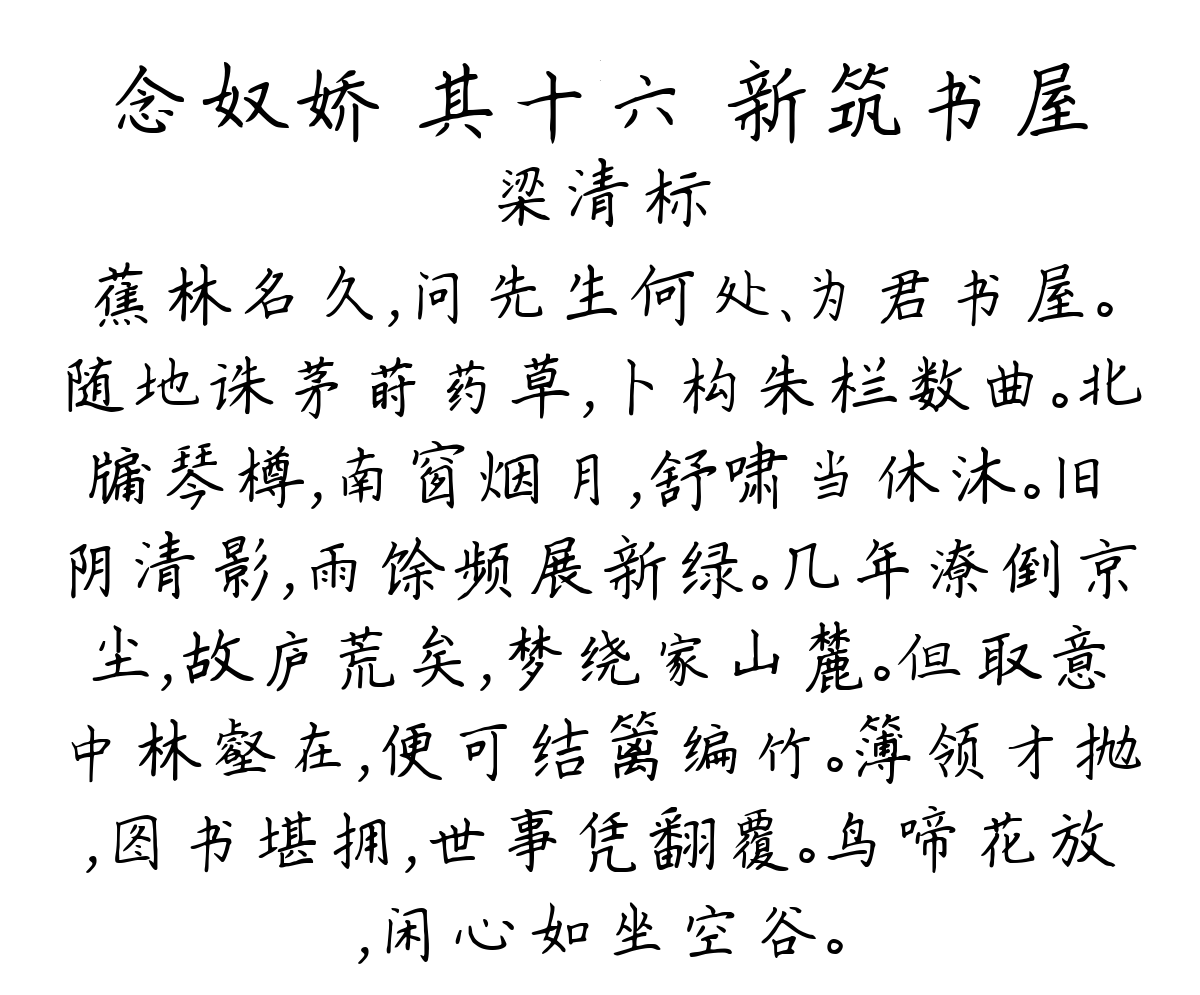 念奴娇 其十六 新筑书屋
梁清标
蕉林名久,问先生何处、为君书屋。
随地诛茅莳药草,卜构朱栏数曲。北
牖琴樽,南窗烟月,舒啸当休沐。旧
阴清影,雨馀频展新绿。几年潦倒京
尘,故庐荒矣,梦绕家山麓。但取意
中林壑在,便可结篱编竹。簿领才抛
,图书堪拥,世事凭翻覆。鸟啼花放
,闲心如坐空谷。